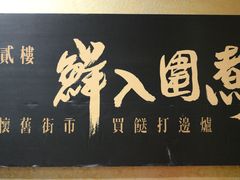 貳樓
鮮入圍煮
懷舊街市 買餸打邊爐